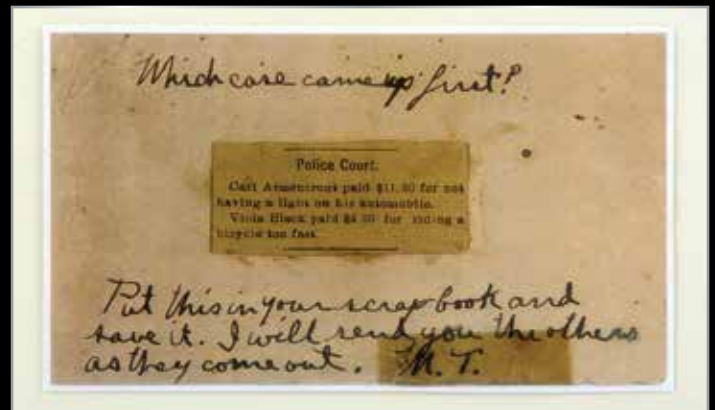 Which case came up first?
Police Court.
Carl Armentrout paid $11.80 for not
having a light on his automobile.
Viola Black paid for riding a
bicycle too fast.
Put this in your scrap book and
save it. I will send you the others
as they come out. M. T.